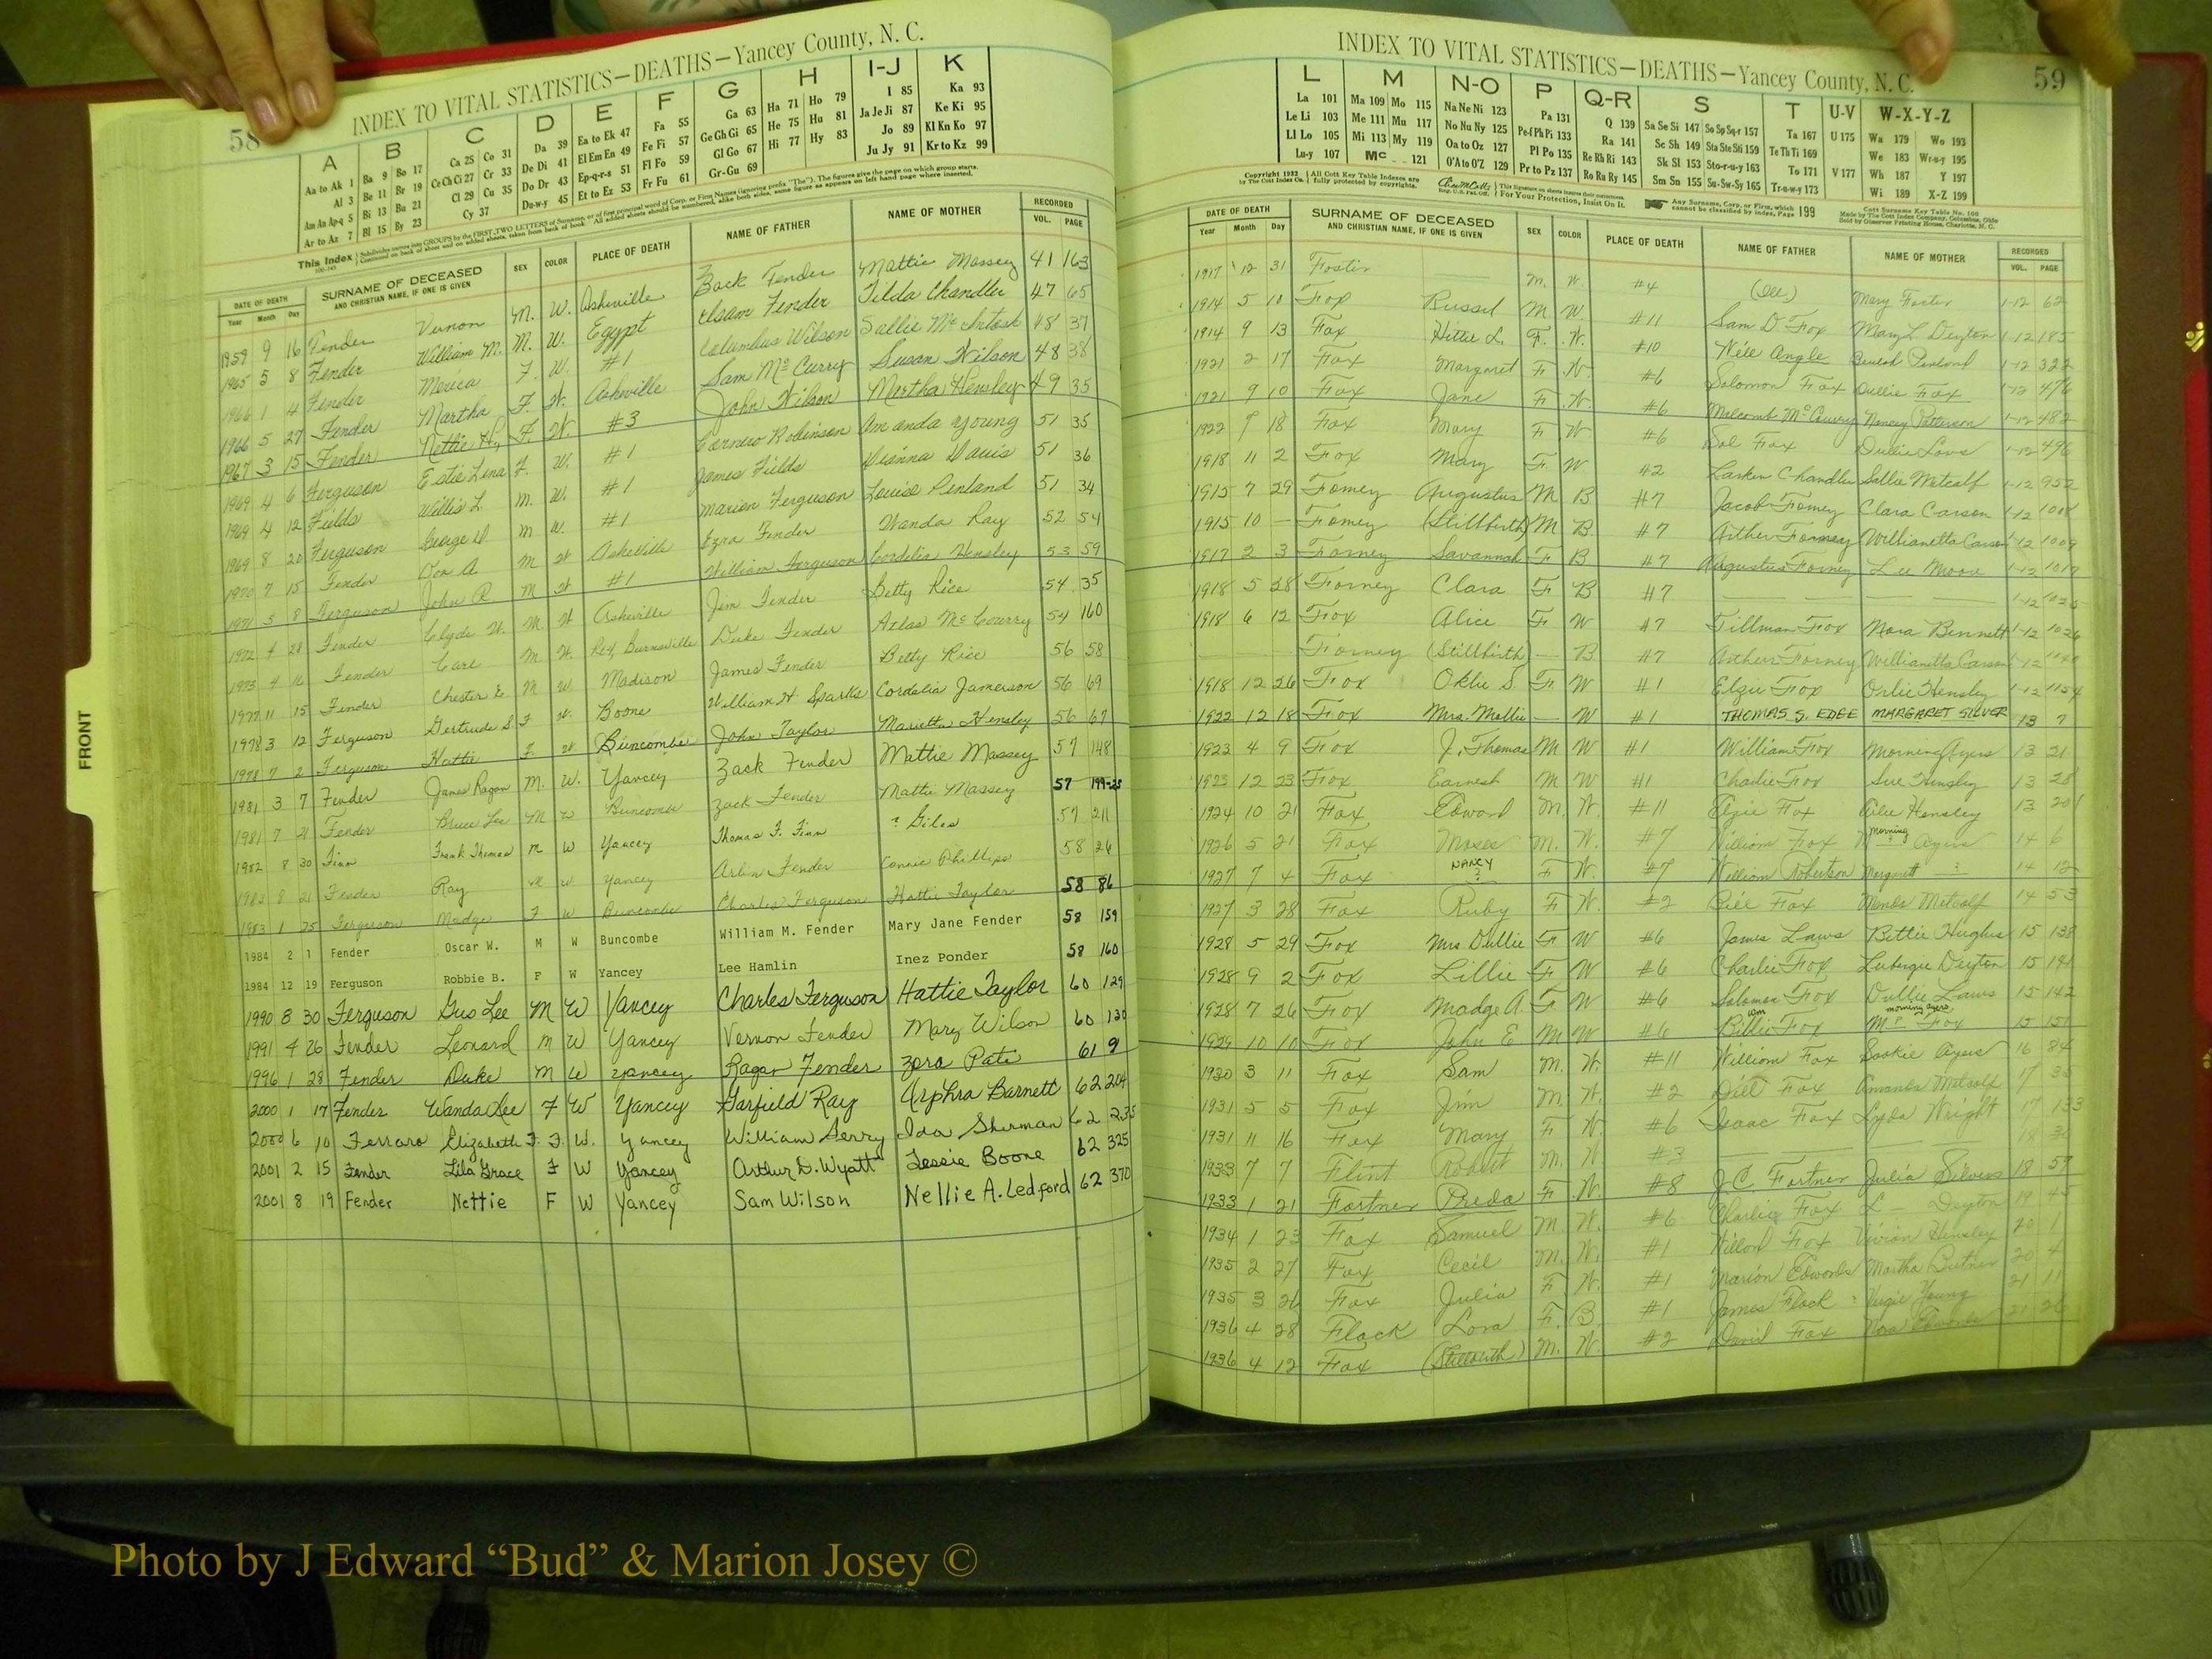 58
INDEX TO VITAL STATISTICS—DEATHS—Yancey County, N. C.
A B C D E F G H I-J K
Aa to Ak 1 Ba 9 Bo 17 Ca 25 Co 31 Da 39 Ea to Ek 47 Fa 55 Ga 63 Ha 71 Ho 79 I 85 Ka 93
Al 3 Be 11 Br 19 Ce Ch Ci 27 Cr 33 De Di 41 El Em En 49 Fe Fi 57 Ge Gh Gi 65 He 75 Hu 81 Ja Je Ji 87 Ke Ki 95
Am An Ap-q 5 Bi 13 Bu 21 Cl 29 Cu 35 Do Dr 43 Ep-q-r-s 51 Fl Fo 59 Gl Go 67 Hi 77 Hy 83 Jo 89 Kl Kn Ko 97
Ar to Az 7 Bl 15 By 23 Cy 37 Du-w-y 45 Et to Ez 53 Fr Fu 61 Gr-Gu 69 Ju Jy 91 Kr to Kz 99
This Index
DATE OF DEATH SURNAME OF DECEASED SEX COLOR PLACE OF DEATH NAME OF FATHER NAME OF MOTHER RECORDED
Year Month Day AND CHRISTIAN NAME, IF ONE IS GIVEN VOL. PAGE
1959 9 16 Fender Vernon M. W. Asheville Zack Fender Mattie Massey 41 163
1965 5 8 Fender William M. M. W. Egypt Isam Fender Tilda Chandler 47 65
1966 1 4 Fender Merica F. W. #1 Columbus Wilson Sallie McIntosh 48 37
1966 5 27 Fender Martha F. W. Asheville Sam McCurry Susan Wilson 48 38
1967 3 15 Fender Nettie H. F. W. #3 John Wilson Martha Hensley 49 35
1969 4 6 Ferguson Estie Lena F. W. #1 Robinson Amanda Young 51 35
1969 4 12 Fields Willis L. M. W. #1 James Fields Dianna Davis 51 36
1969 8 20 Ferguson George D M W. #1 Marion Ferguson Louise Penland 51 34
1970 7 15 Fender Jon A. M W Asheville Ezra Fender Wanda Ray 52 54
1971 5 8 Ferguson John R. M W #1 William Ferguson Cordelia Hensley 53 59
1972 4 28 Fender Clyde W. M. W Asheville Jim Fender Betty Rice 54 35
1973 4 16 Fender Carl M W. Burnsville Duke Fender Atlas McCourry 54 160
1977 11 15 Fender Chester E M W Madison James Fender Betty Rice 56 58
1978 3 12 Ferguson Gertrude S. F W. Boone William H Sparks Cordelia Jamerson 56 69
1978 7 2 Ferguson Hattie F W Buncombe John Taylor Marietta Hensley 56 67
1981 3 7 Fender James Ragan M. W. Yancey Zack Fender Mattie Massey 57 148
1981 7 21 Fender Bruce Lee M W Buncombe Zack Fender Mattie Massey 57 199-25
1982 8 30 Finn Frank Thomas M W Yancey Thomas F. Finn ? Giles 57 211
1982 8 21 Fender Ray M W Yancey Arlin Fender Connie Phillips 58 26
1983 1 25 Ferguson Madge F W Buncombe Charles Ferguson Hattie Taylor 58 86
1984 2 1 Fender Oscar W. M W Buncombe William M. Fender Mary Jane Fender 58 159
1984 12 19 Ferguson Robbie B. F W Yancey Lee Hamlin Inez Ponder 58 160
1990 8 30 Ferguson Gus Lee M W Yancey Charles Ferguson Hattie Taylor 60 129
1991 4 26 Fender Leonard M W Yancey Vernon Fender Mary Wilson 60 130
1996 1 28 Fender Duke M W Yancey Ragan Fender Zora Pate 61 9
2000 1 17 Fender Wanda Lee F W Yancey Garfield Ray Arphra Barnett 62 204
2000 6 10 Ferraro Elizabeth F. F. W. Yancey William Serry Ida Sherman 62 235
2001 2 15 Fender Lila Grace F W Yancey Arthur D. Wyatt Jessie Boone 62 325
2001 8 19 Fender Nettie F W Yancey Sam Wilson Nellie A. Ledford 62 370
FRONT
INDEX TO VITAL STATISTICS—DEATHS—Yancey County, N. C. 59
L M N-O P Q-R S T U-V W-X-Y-Z
La 101 Ma 109 Mo 115 Na Ne Ni 123 Pa 131 Q 139 Sa Se Si 147 So Sp Sq-r 157 Ta 167 U 175 Wa 179 Wo 193
Le Li 103 Me 111 Mu 117 No Nu Ny 125 Pe-f Ph Pi 133 Ra 141 Sc Sh 149 Sta Ste Sti 159 Te Th Ti 169 We 183 Wr-u-y 195
Ll Lo 105 Mi 113 My 119 Oa to Oz 127 Pl Po 135 Re Rh Ri 143 Sk Sl 153 Sto-r-u-y 163 To 171 V 177 Wh 187 Y 197
Lu-y 107 Mc 121 O'A to O'Z 129 Pr to Pz 137 Ro Ru Ry 145 Sm Sn 155 Su-Sw-Sy 165 Tr-u-w-y 173 Wi 189 X-Z 199
Copyright 1932 All Cott Key Table Indexes are fully protected by copyrights. For Your Protection, Insist On It. Any Surname, Corp. or Firm, which cannot be classified by index, Page 199
DATE OF DEATH SURNAME OF DECEASED SEX COLOR PLACE OF DEATH NAME OF FATHER NAME OF MOTHER RECORDED
Year Month Day AND CHRISTIAN NAME, IF ONE IS GIVEN VOL. PAGE
1917 12 31 Foster — M. W. #4 (Ill.) Mary Foster 1-12 62
1914 5 10 Fox Russel M W. #11 Sam D. Fox Mary L Deyton 1-12 185
1914 9 13 Fox Hittie L. F. W. #10 Will Angle Beulah Penland 1-12 322
1921 2 17 Fox Margaret F W. #6 Solomon Fox Dullie Fox 1-12 476
1921 9 10 Fox Jane F W. #6 Malcomb McCurry Nancy Patterson 1-12 482
1922 9 18 Fox Mary F W #6 Sol Fox Dullie Laws 1-12 496
1918 11 2 Fox Mary F W #2 Larkin Chandler Sallie Metcalf 1-12 952
1915 7 29 Forney Augustus M B #7 Jacob Forney Clara Carson 1-12 1008
1915 10 — Forney (Stillbirth) M B. #7 Arthur Forney Willianetta Carson 1-12 1009
1917 2 3 Forney Savannah F B #7 Augustus Forney Lee Moore 1-12 1017
1918 5 28 Forney Clara F B #7 — — 1-12
1918 6 12 Fox Alice F W #7 Tillman Fox Nora Bennett 1-12 1026
— Forney (Stillbirth) — B #7 Arthur Forney Willianetta Carson 1-12
1918 12 26 Fox Oklie S. F. W #1 Elzie Fox Orlie Hensley 1-12 1154
1922 12 18 Fox Mrs. Mollie — W #1 THOMAS S. EDGE MARGARET SILVER 13 7
1923 4 9 Fox J. Thomas M W #1 William Fox Morning Ayers 13 21
1923 12 23 Fox Earnest M W #1 Charlie Fox Sue Hensley 13 28
1924 10 21 Fox Edward M. W. #11 Elzie Fox Ollie Hensley 13 201
1926 5 21 Fox Moses M. W. #7 William Fox Morning Ayers 14 6
1927 7 4 Fox NANCY F W. #7 William Robertson Margarett — ? 14 12
1927 3 28 Fox Ruby F W. #2 Bill Fox Manda Metcalf 14 53
1928 5 29 Fox Mrs. Dullie F W #6 James Laws Bettie Hughes 15 138
1928 9 2 Fox Lillie F W #6 Charlie Fox Deyton 15 141
1928 7 26 Fox Madge A. F W #6 Solomon Fox Dullie Laws 15 142
1929 10 10 Fox John E M W #6 Billie Fox wm Mrs Fox morning ayers 15 151
1930 3 11 Fox Sam M. W. #11 William Fox Sookie Ayers 16 84
1931 5 5 Fox Jim M. W. #2 Dill Fox Amanda Metcalf 17 35
1931 11 16 Fox Mary F W. #6 Isaac Fox Lyda Wright 17 133
1933 7 7 Flint Robert M. W #3 — — 18
1933 1 21 Fortner Preda F W. #8 J.C. Fortner Julia Silvers 18 57
1934 1 23 Fox Samuel M. W. #6 Charlie Fox L— Deyton 19 45
1935 2 27 Fox Cecil M. W. #1 Fox Vivian Hensley 20 1
1935 3 26 Fox Julia F. W. #1 Marion Edwards Martha Butner 20 4
1936 4 28 Flack Lora F. B. #1 James Flack Young 21 11
1936 4 12 Fox (Stillbirth) M. W. #2 David Fox Nora Edwards 21 26
Photo by J Edward “Bud” & Marion Josey ©